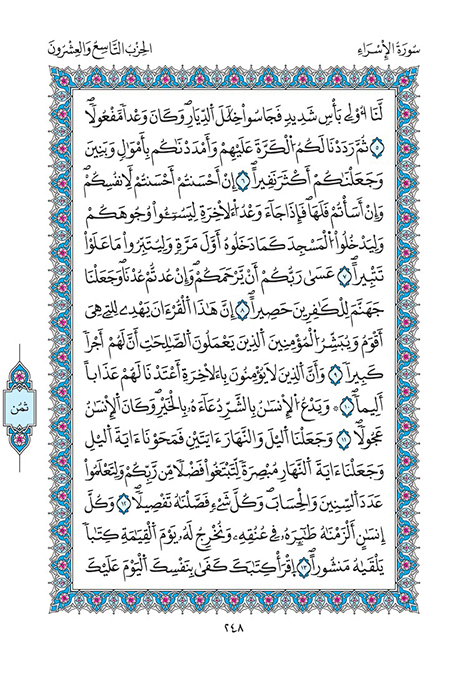 سُورَةُ الإِسْرَاءِ
الحِزْبُ التَّاسِعُ وَالعِشْرُونَ
لَّنَا أُوْلِے بَأْسٖ شَدِيدٖ فَجَاسُواْ خِلَٰلَ اَ۬لدِّيارِۖ وَكَانَ وَعْداٗ مَّفْعُولاٗۖ
٥ ثُمَّ رَدَدْنَا لَكُمُ اُ۬لْكَرَّةَ عَلَيْهِمْ وَأَمْدَدْنَٰكُم بِأَمْوَٰلٖ وَبَنِينَ
وَجَعَلْنَٰكُمْ أَكْثَرَ نَفِيراًۖ ٦ اِنْ أَحْسَنتُمْ أَحْسَنتُمْ لِأَنفُسِكُمْۖ
وَإِنْ أَسَأْتُمْ فَلَهَاۖ فَإِذَا جَآءَ وَعْدُ اُ۬لَاخِرَةِ لِيَسُـُٔواْ وُجُوهَكُمْ
وَلِيَدْخُلُواْ اُ۬لْمَسْجِدَ كَمَا دَخَلُوهُ أَوَّلَ مَرَّةٖ وَلِيُتَبِّرُواْ مَا عَلَوْاْ
تَتْبِيراًۖ ٧ عَسَىٰ رَبُّكُمُۥ أَنْ يَّرْحَمَكُمْۖ وَإِنْ عُدتُّمْ عُدْنَاۖ وَجَعَلْنَا
جَهَنَّمَ لِلْكَٰفِرِينَ حَصِيراًۖ ٨ اِنَّ هَٰذَا اَ۬لْقُرْءَانَ يَهْدِے لِلتِے هِيَ
أَقْوَمُ وَيُبَشِّرُ اُ۬لْمُؤْمِنِينَ اَ۬لذِينَ يَعْمَلُونَ اَ۬لصَّٰلِحَٰتِ أَنَّ لَهُمُۥ أَجْراٗ
كَبِيراٗ ٩ وَأَنَّ اَ۬لذِينَ لَا يُؤْمِنُونَ بِالَاخِرَةِ أَعْتَدْنَا لَهُمْ عَذَاباً
اَلِيماٗۖ ١٠ وَيَدْعُ اُ۬لِانسَٰنُ بِالشَّرِّ دُعَآءَهُۥ بِالْخَيْرِۖ وَكَانَ اَ۬لِانسَٰنُ
عَجُولاٗۖ ١١ وَجَعَلْنَا اَ۬ليْلَ وَالنَّهَارَ ءَايَتَيْنِۖ فَمَحَوْنَا ءَايَةَ اَ۬ليْلِ
وَجَعَلْنَا ءَايَةَ اَ۬لنَّهَارِ مُبْصِرَةٗ لِّتَبْتَغُواْ فَضْلاٗ مِّن رَّبِّكُمْ وَلِتَعْلَمُواْ
عَدَدَ اَ۬لسِّنِينَ وَالْحِسَابَۖ وَكُلَّ شَےْءٖ فَصَّلْنَٰهُ تَفْصِيلاٗۖ ١٢ وَكُلَّ
إِنسَٰنٍ اَلْزَمْنَٰهُ طَٰٓئِرَهُۥ فِے عُنُقِهِۦۖ وَنُخْرِجُ لَهُۥ يَوْمَ اَ۬لْقِيَٰمَةِ كِتَٰباٗ
يَلْقَىٰهُ مَنشُوراًۖ ١٣ اِقْرَأْ كِتَٰبَكَ كَفَىٰ بِنَفْسِكَ اَ۬لْيَوْمَ عَلَيْكَ
ثمن
٢٤٨